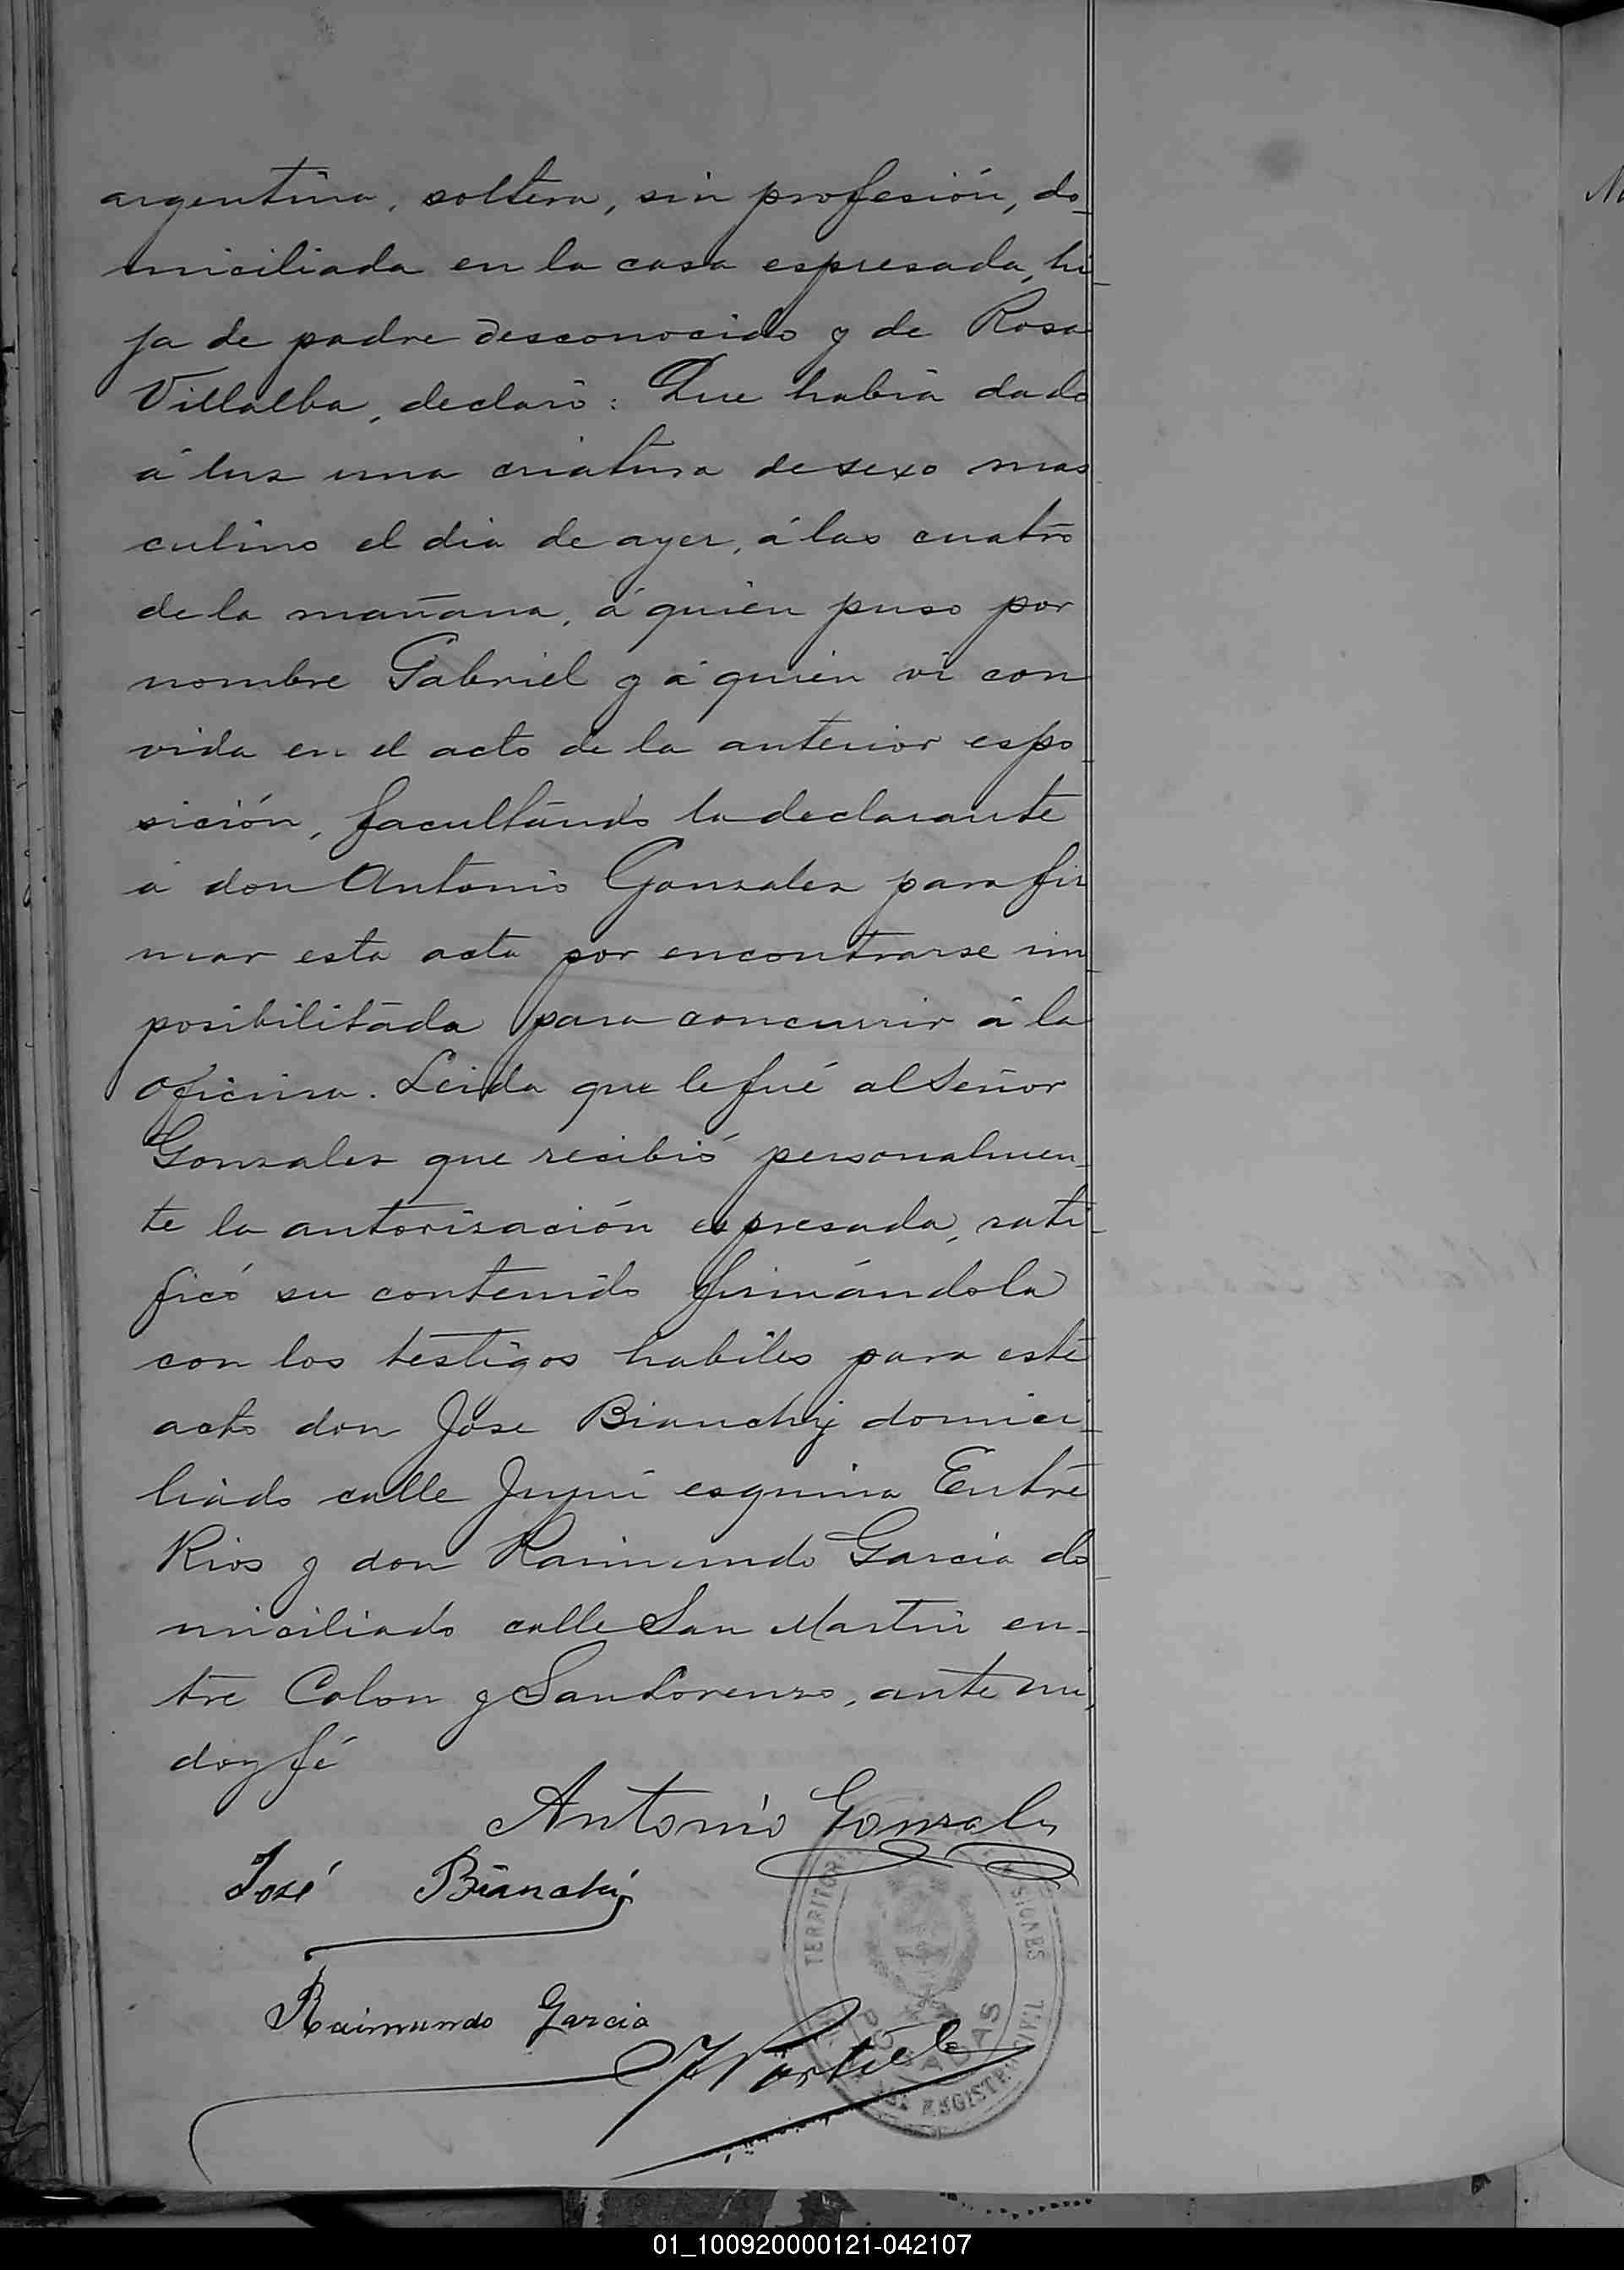 argentina, soltera, sin profesión, do-
miciliada en la casa espresada, hi-
ja de padre desconocido y de Rosa
Villalba, declaró: Que había dado
á luz una criatura de sexo mas
culino el dia de ayer, á las cuatro
de la mañana, á quién puso por
nombre Gabriel y á quién vi con
vida en el acto de la anterior espo-
sición, facultando la declarante
á don Antonio Gonzalez para fir
mar esta acta por encontrarse im-
posibilitada para concurrir á la
oficina. Leida que le fué al Señor
Gonzalez que recibió personalmen-
te la autorización espresada, rati-
ficó su contenido firmándola
con los testigos habiles para este
acto don José Bianchij domici-
liado calle Jujuí esquina Entre
Rios y don Raimundo Garcia do-
miciliado calle San Martin en-
tre Colon y San Lorenzo, ante mi,
doy fé
Antonio Gonzalez
José Bianchij
Raimundo Garcia
TERRITORIO SIONES
POSADAS
REGISTRO CIVIL
01_100920000121-042107